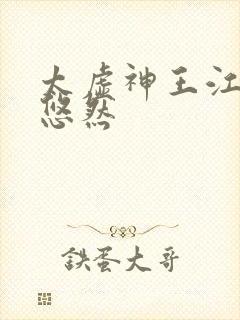 太虚神王江
悠然
鉄蛋大哥